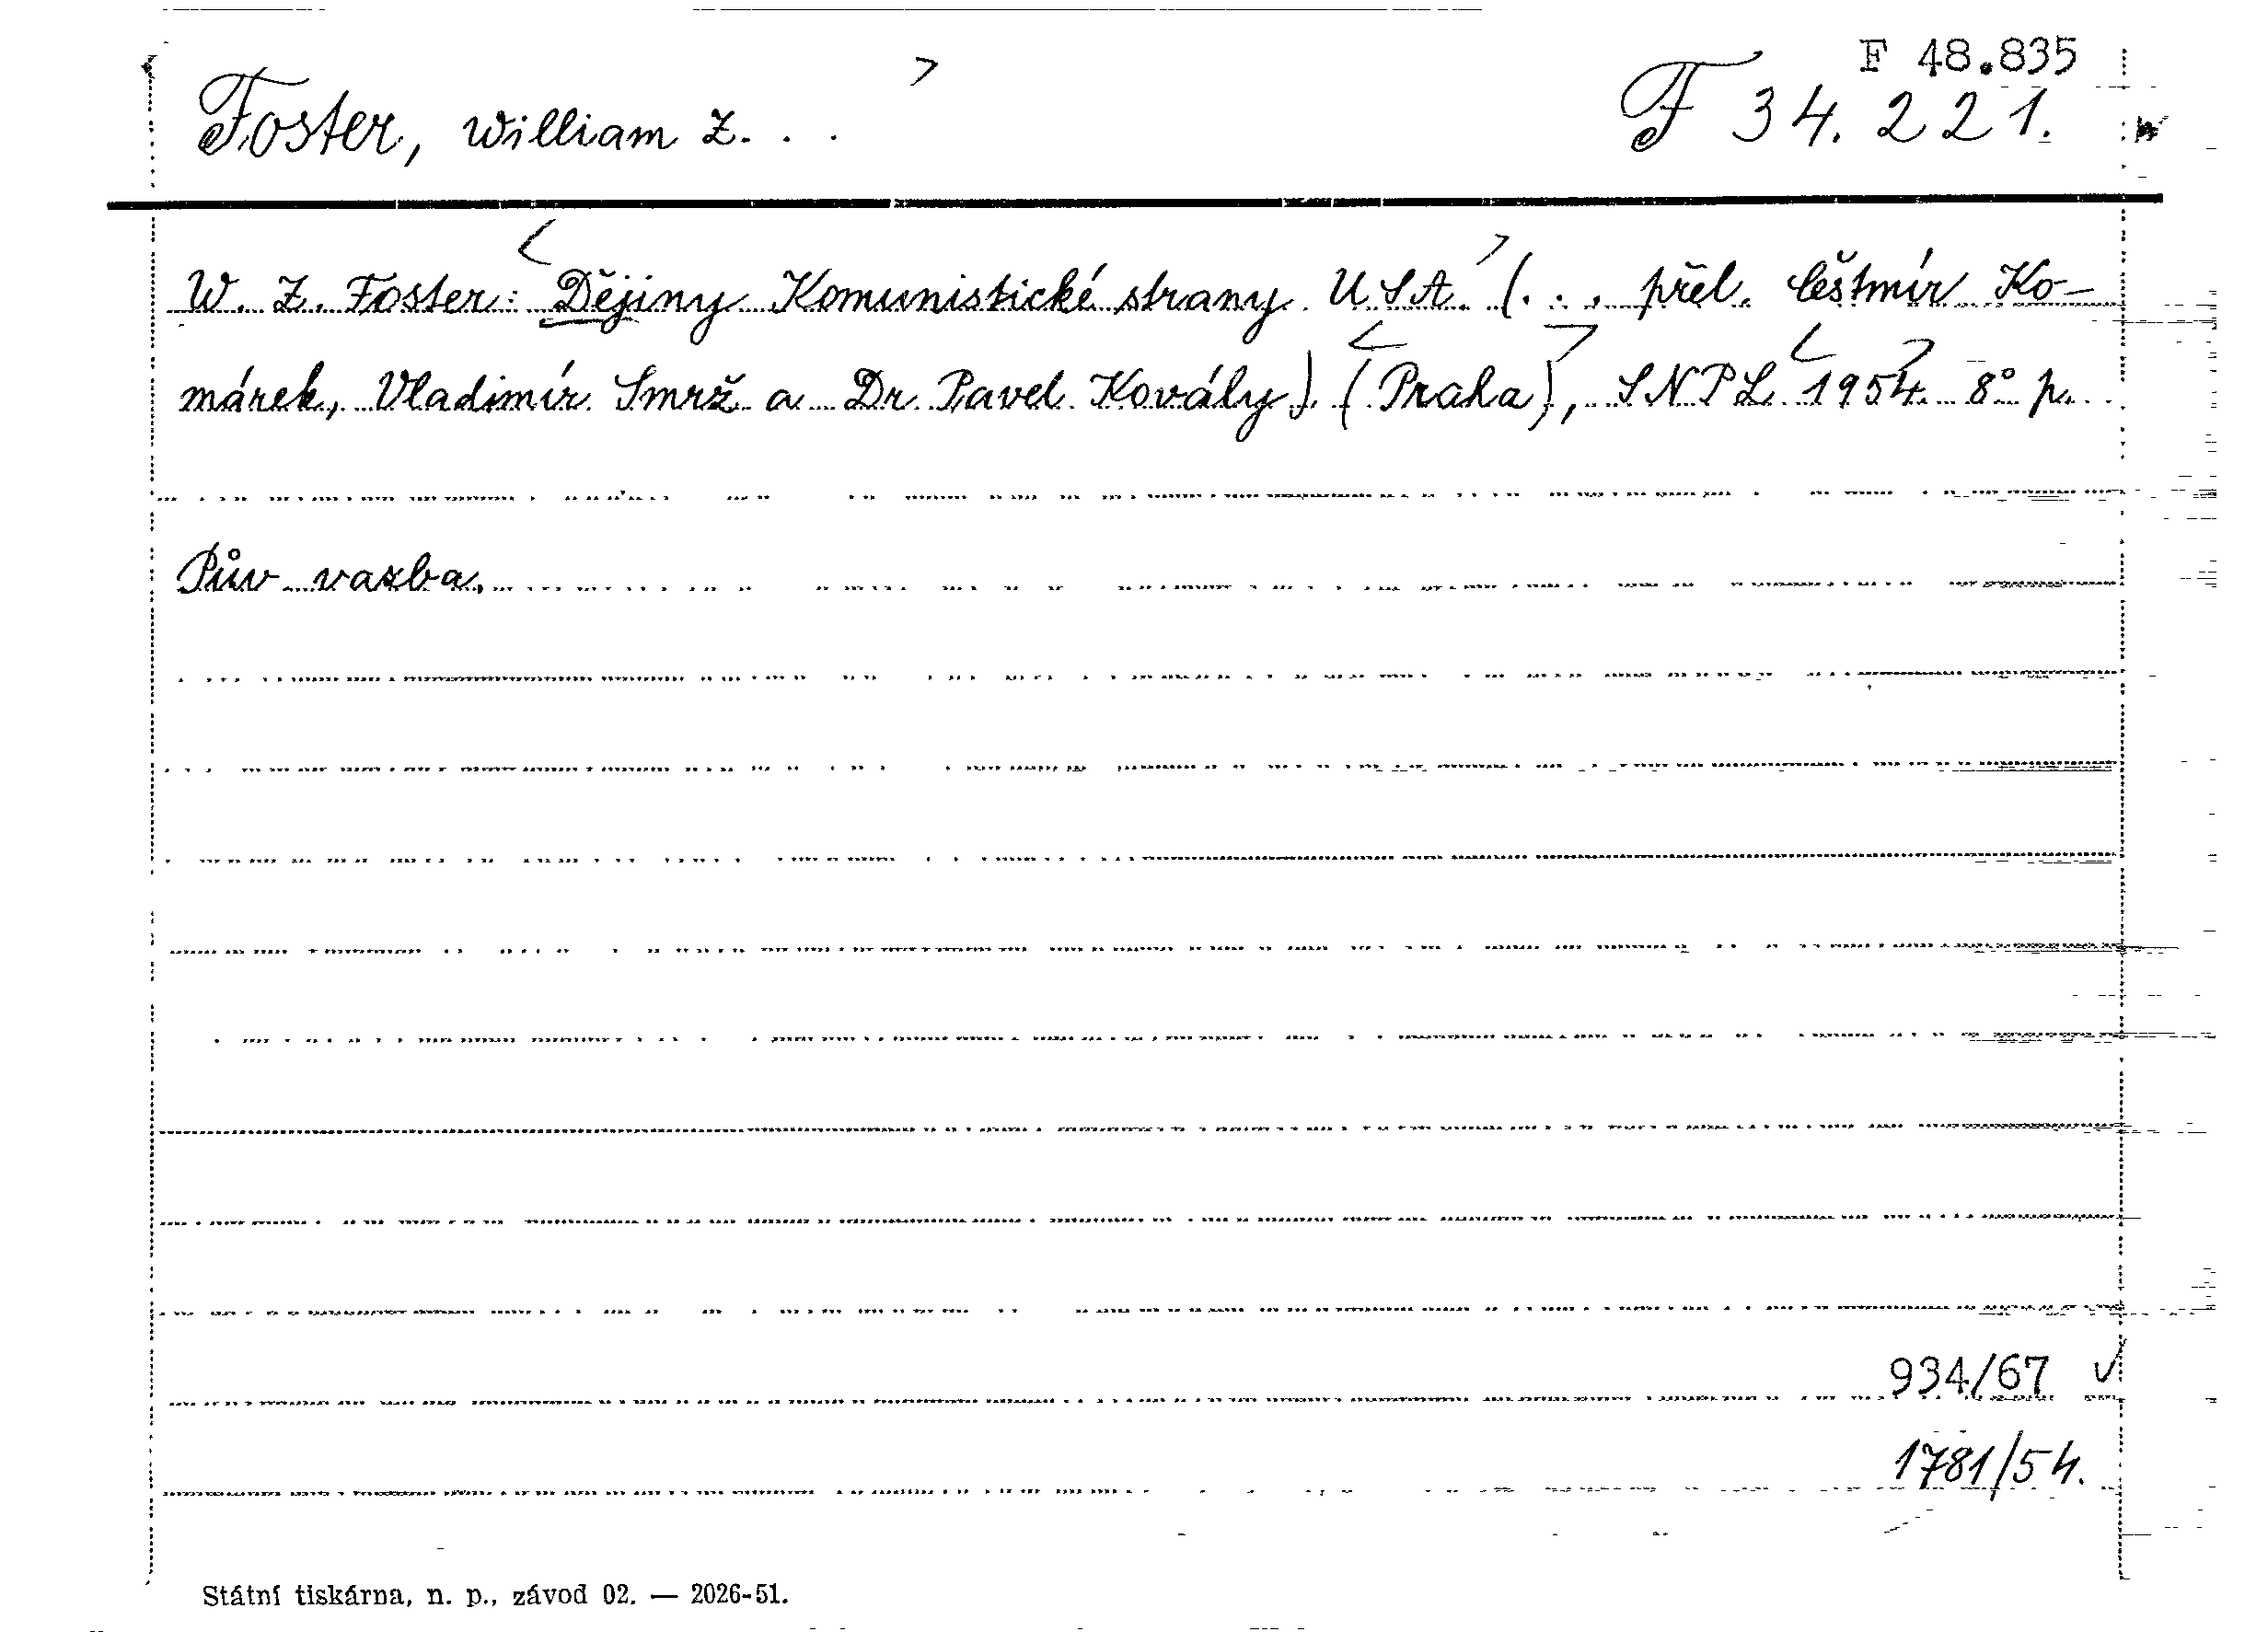 F 48.835
Foster, William Z. . . F 34.221.
W. Z. Foster: Dějiny Komunistické strany USA. (. . , přel. Čěštmír Ko-
márek, Vladimír Smrž a Dr. Pavel Kovály) (Praha), SNPL 1954. 8° p.
Pův vazba.
934/67 ✓
1781/54.
Státní tiskárna, n. p., závod 02. — 2026-51.